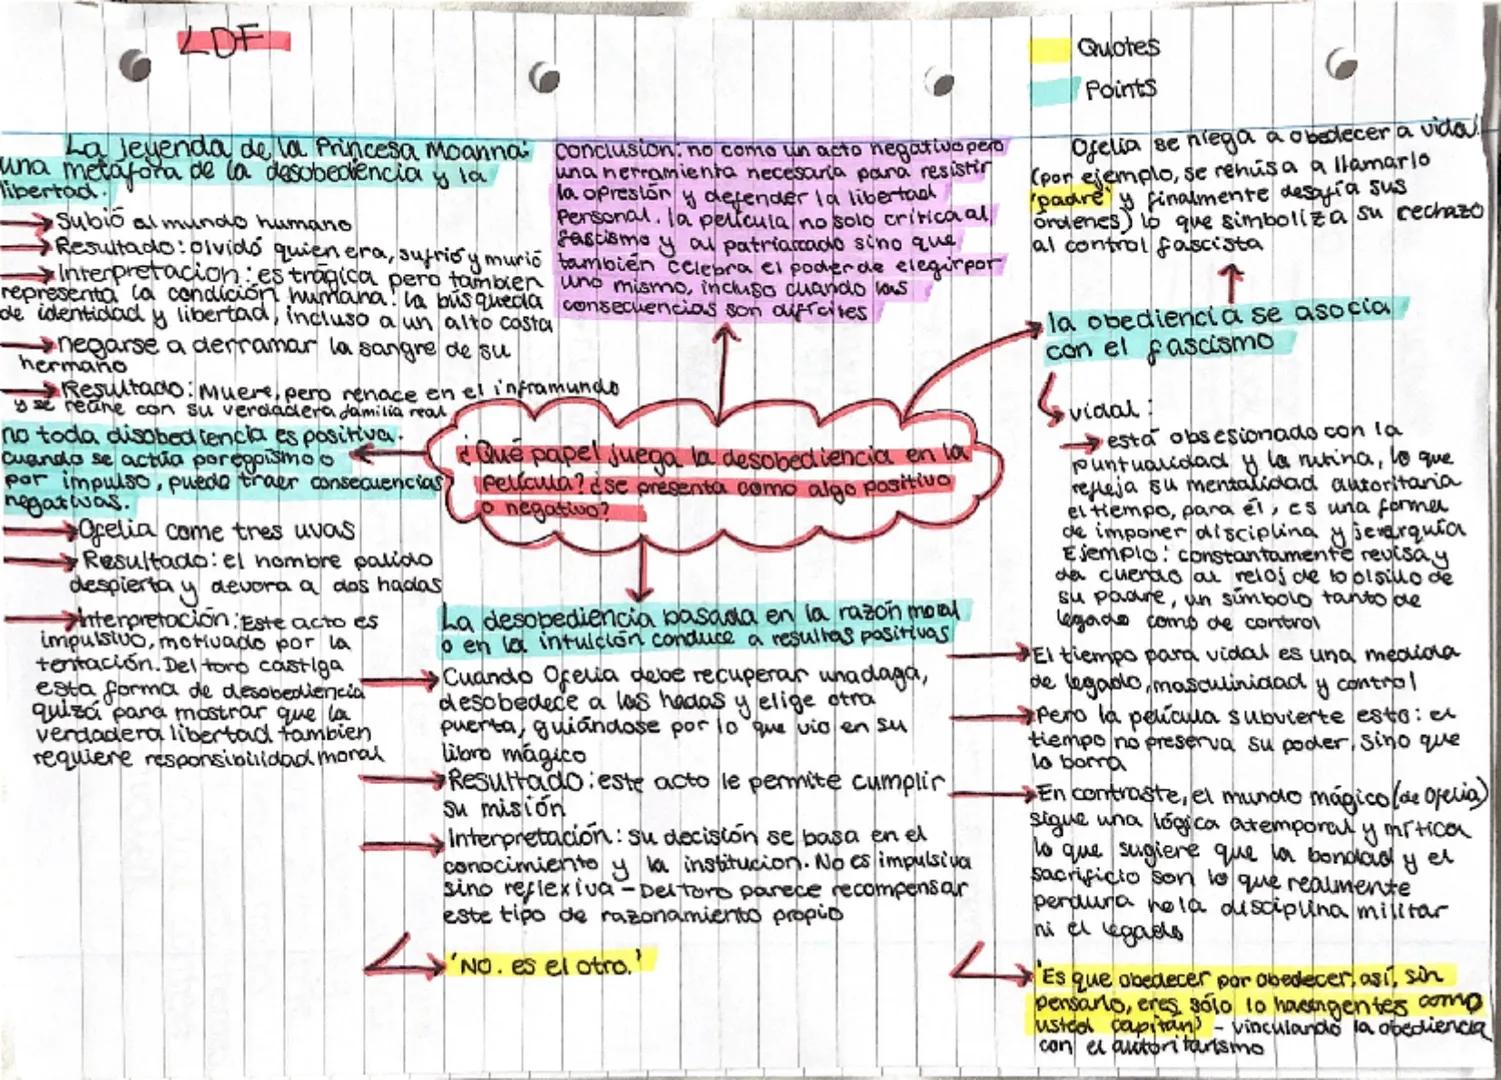 LDF
Quotes
Points
La leyenda de la Princesa Moanna:
una metáfora de la desobediencia y la
libertad.
→ Subió al mundo humano
→ Resultado: olvidó quien era, sufrió y murió
→ Interpretacion: es trágica pero tambien
representa la condición humana: la búsqueda
de identidad y libertad, incluso a un alto costa
→ negarse a derramar la sangre de su
hermano
→ Resultado: Muere, pero renace en el inframundo
y se reúne con su verdadera familia real
Conclusión: no como un acto negativo pero
una herramienta necesaria para resistir
la opresión y defender la libertad
personal. la película no solo critica al
fascismo y al patriarcado sino que
también celebra el poder de elegir por
uno mismo, incluso cuando las
consecuencias son difíciles
Ofelia se niega a obedecer a vidal
(por ejemplo, se rehúsa a llamarlo
'padre' y finalmente desafía sus
órdenes) lo que simboliza su rechazo
al control fascista
la obediencia se asocia
con el fascismo
vidal:
→ está obsesionado con la
puntualidad y la rutina, lo que
refleja su mentalidad autoritaria
el tiempo, para él, es una forma
de imponer disciplina y jerarquía
Ejemplo: constantemente revisa y
da cuerda al reloj de bolsillo de
su padre, un símbolo tanto de
legado como de control
→ El tiempo para vidal es una medida
de legado, masculinidad y control
→ Pero la película subvierte esto: el
tiempo no preserva su poder, sino que
lo borra
→ En contraste, el mundo mágico (de Ofelia)
sigue una lógica atemporal y mítica
lo que sugiere que la bondad y el
sacrificio son lo que realmente
perdura no la disciplina militar
ni el legado
→ 'Es que obedecer por obedecer, así, sin
pensarlo, eres sólo lo hacen gentes como
usted capitán' - vinculando la obediencia
con el autoritarismo
¿Qué papel juega la desobediencia en la
película? ¿se presenta como algo positivo
o negativo?
no toda disobediencia es positiva.
cuando se actúa por egoísmo o
por impulso, puede traer consecuencias
negativas.
→ Ofelia come tres uvas
→ Resultado: el hombre palido
despierta y devora a dos hadas
→ Interpretación: Este acto es
impulsivo, motivado por la
tentación. Del toro castiga
esta forma de desobediencia
quizá para mostrar que la
verdadera libertad tambien
requiere responsibilidad moral
La desobediencia basada en la razón moral
o en la intuición conduce a resultas positivas
→ Cuando Ofelia debe recuperar una daga,
desobedece a las hadas y elige otra
puerta, guiándose por lo que vio en su
libro mágico
→ Resultado: este acto le permite cumplir
su misión
→ Interpretación: su decisión se basa en el
conocimiento y la institucion. No es impulsiva
sino reflexiva - Del Toro parece recompensar
este tipo de razonamiento propio
→ 'NO. es el otro.'